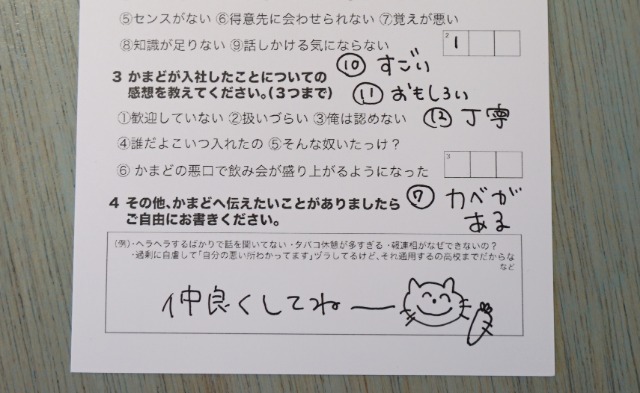 ⑤センスがない ⑥得意先に会わせられない ⑦覚えが悪い
⑧知識が足りない ⑨話しかける気にならない
2 1
⑩ すごい
3 かまどが入社したことについての
感想を教えてください。(3つまで)
⑪ おもしろい
①歓迎していない ②扱いづらい ③俺は認めない
⑫ 丁寧
④誰だよこいつ入れたの ⑤そんな奴いたっけ?
⑥ かまどの悪口で飲み会が盛り上がるようになった
3
⑦ カベが
ある
4 その他、かまどへ伝えたいことがありましたら
ご自由にお書きください。
(例)・ヘラヘラするばかりで話を聞いてない ・タバコ休憩が多すぎる ・報連相がなぜできないの?
・過剰に自虐して「自分の悪い所わかってます」ヅラしてるけど、それ通用するの高校までだからな
など
仲良くしてねー